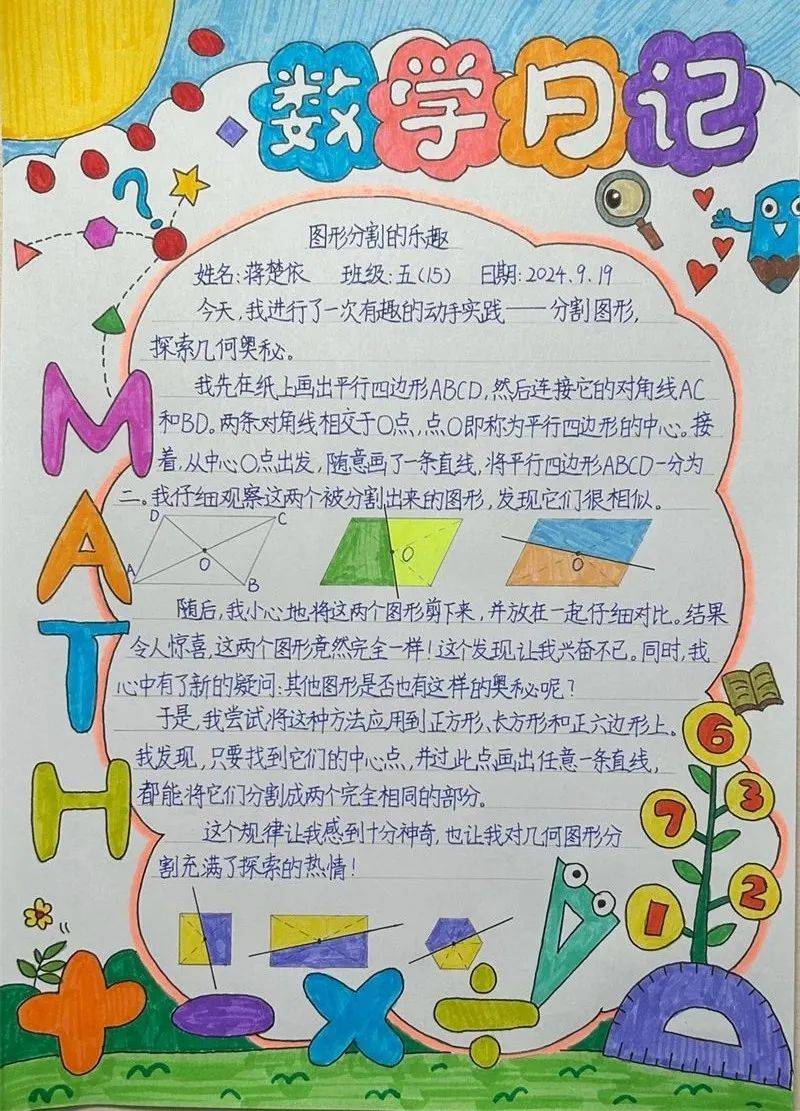 数学日记
图形分割的乐趣
姓名:蒋楚依 班级:五(15) 日期:2024.9.19
今天,我进行了一次有趣的动手实践——分割图形,
探索几何奥秘。
我先在纸上画出平行四边形ABCD,然后连接它的对角线AC
和BD。两条对角线相交于O点,点O即称为平行四边形的中心。接
着,从中心O点出发,随意画了一条直线,将平行四边形ABCD一分为
二。我仔细观察这两个被分割出来的图形,发现它们很相似。
D C
A B
O
O
O
随后,我小心地将这两个图形剪下来,并放在一起仔细对比。结果
令人惊喜,这两个图形竟然完全一样!这个发现让我兴奋不已。同时,我
心中有了新的疑问:其他图形是否也有这样的奥秘呢?
于是,我尝试将这种方法应用到正方形、长方形和正六边形上。
我发现,只要找到它们的中心点,并过此点画出任意一条直线,
都能将它们分割成两个完全相同的部分。
这个规律让我感到十分神奇,也让我对几何图形分
割充满了探索的热情!
?
M
A
T
H
6
7 3
1 2
+ - × ÷